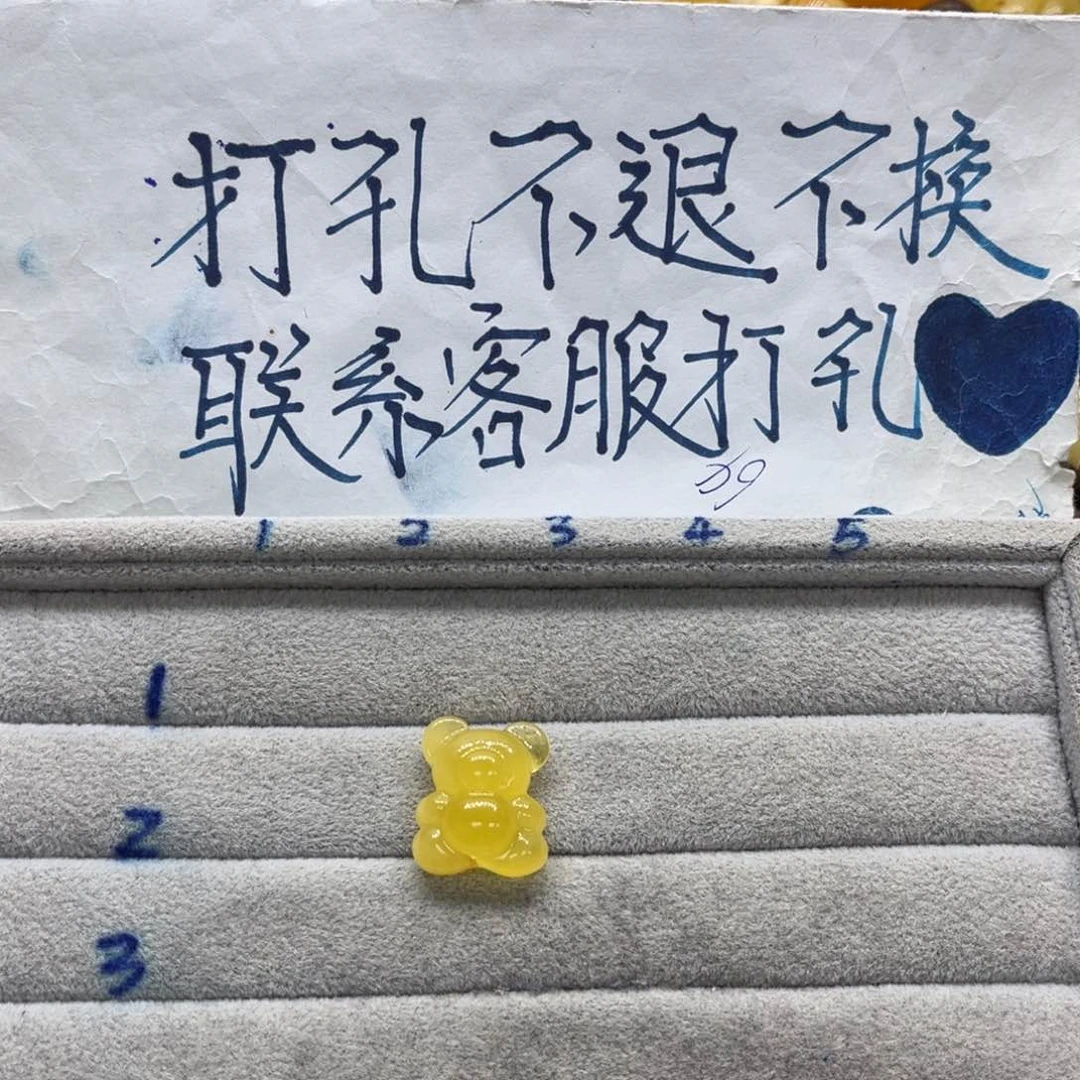 打孔不退不換
联系客服打孔
1 2 3 4 5
1
2
3